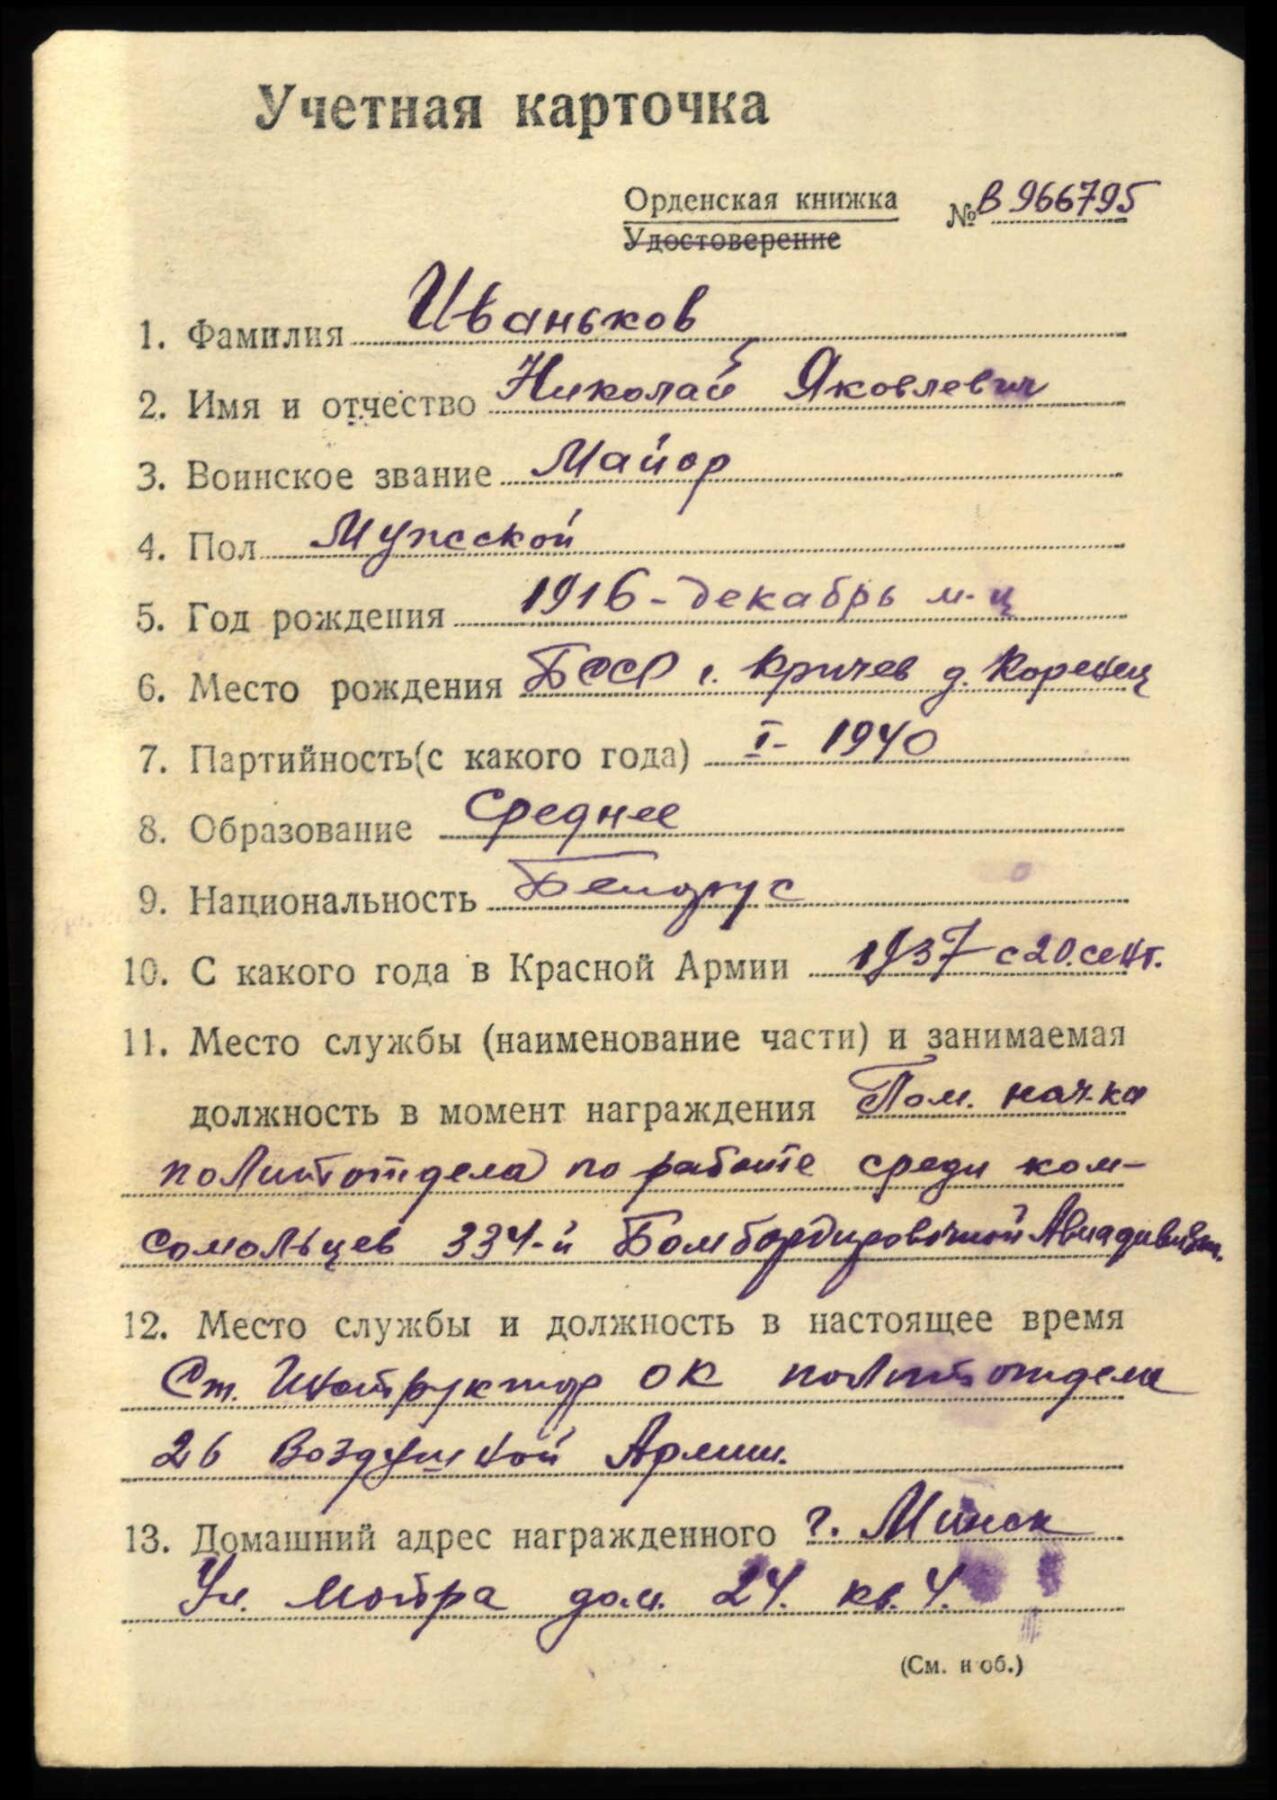 Учетная карточка
Орденская книжка № В 966795
Удостоверение
1. Фамилия Иваньков
2. Имя и отчество Николай Яковлевич
3. Воинское звание Майор
4. Пол Мужской
5. Год рождения 1916 - декабрь м-ц
6. Место рождения БССР г. Кричев д. Коренец
7. Партийность(с какого года) I - 1940
8. Образование Среднее
9. Национальность Белорус
10. С какого года в Красной Армии 1937 с 20. сент.
11. Место службы (наименование части) и занимаемая
должность в момент награждения Пом. нач-ка
политотдела по работе среди ком-
сомольцев 334-й Бомбардировочной Авиадивизии.
12. Место службы и должность в настоящее время
Ст. Инструктор ОК политотдела
26 Воздушной Армии.
13. Домашний адрес награжденного г. Минск
Ул. дом. 24. кв. 4.
(См. н об.)